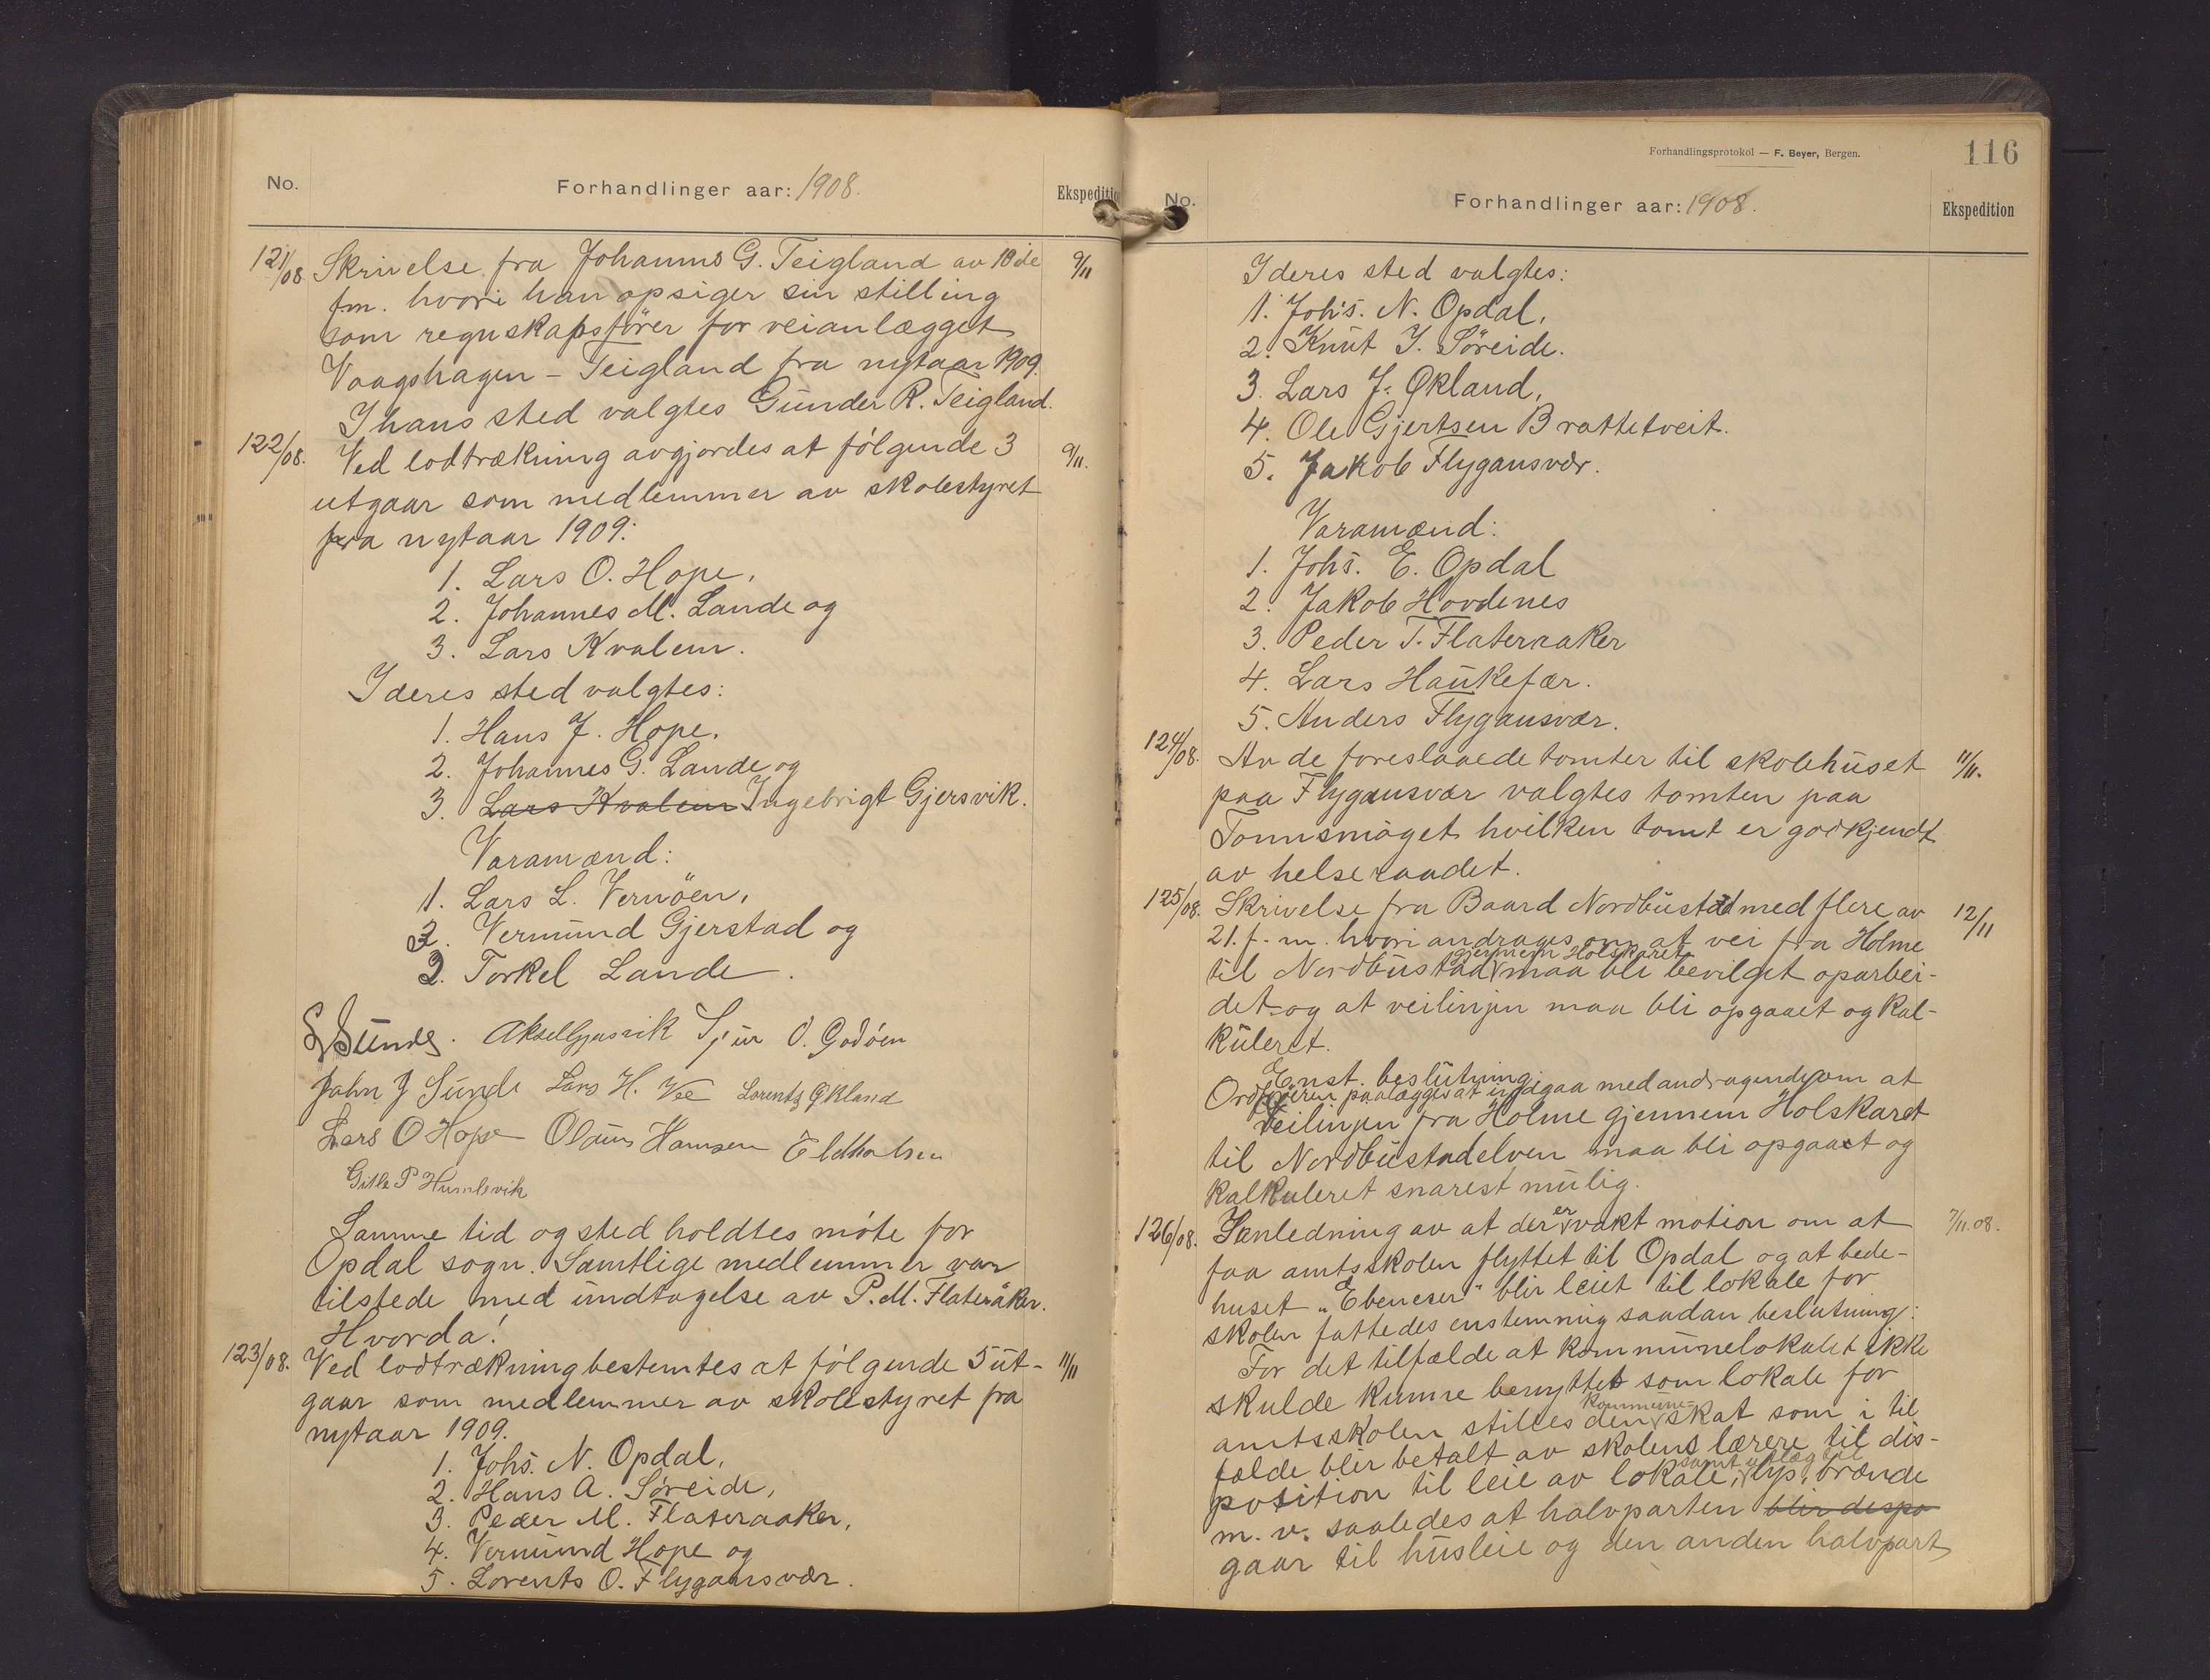 No.
Forhandlinger aar: 1908.
Ekspeditio
121/08. Skrivelse fra Johannes G. Teigland av 18de 9/11
f.m. hvori han opsiger sin stilling
som regnskapsfører for veianlægget
Vaagshagen - Teigland fra nytaar 1909.
I hans sted valgtes Gunder R. Teigland.
122/08. Ved lodtrækning avgjordes at følgende 3 9/11.
utgaar som medlemmer av skolestyret
fra nytaar 1909:
1. Lars O. Hope,
2. Johannes M. Lande og
3. Lars Kvalem.
I deres sted valgtes:
1. Hans J. Hope,
2. Johannes G. Lande og
3. Lars Kvalem Ingebrigt Gjersvik.
Varamænd:
1. Lars L. Vernöen,
2. Vermund Gjerstad og
3. Torkel Lande.
Sunde. Aksel Gjersvik Sjur O. Godøen
John J Sunde Lars H. Vee Lorentz Økland
Lars O Hope Olaus Hansen
Gitle P Humlevik
Samme tid og sted holdtes møte for
Opdal sogn. Samtlige medlemmer var
tilstede med undtagelse av P. M. Flateråker.
Hvorda!
123/08. Ved lodtrækning bestemtes at følgende 5 ut- 11/11
gaar som medlemmer av skolestyret fra
nytaar 1909.
1. Johs. N. Opdal,
2. Hans A. Søreide,
3. Peder M. Flateraaker,
4. Vermund Hope og
5. Lorents O. Flygansvær.
Forhandlingsprotokol — F. Beyer, Bergen.
116
No.
Forhandlinger aar: 1908.
Ekspedition
I deres sted valgtes:
1. Johs. N. Opdal,
2. Knut J. Söreide.
3. Lars J. Økland,
4. Ole Gjertsen Brattetveit.
5. Jakob Flygansvær.
Varamænd:
1. Johs. E. Opdal
2. Jakob Hovdenes
3. Peder T. Flateraaker
4. Lars Haukefær.
5. Anders Flygansvær.
124/08. Av de foreslaaede tomter til skolehuset 11/11.
paa Flygansvær valgtes tomten paa
Tonnsmöget hvilken tomt er godkjendt
av helseraadet.
125/08. Skrivelse fra Baard Nordbustad med flere av 12/11
21. f. m. hvori andrages om at vei fra Holme
gjennem Holskaret
til Nordbustad maa bli bevilget oparbei-
det og at veilinjen maa bli opgaaet og kal-
kuleret.
Enst. beslutning:
Ordføreren paalægges at indgaa med andragende om at
veilinjen fra Holme gjennem Holskaret
til Nordbustadelven maa bli opgaaet og
kalkuleret snarest mulig.
126/08. I anledning av at der er vakt motion om at 7/11.08.
faa amtsskolen flyttet til Opdal og at bede-
huset "Ebeneser" blir leiet til lokale for
skolen fattedes enstemmig saadan beslutning:
For det tilfælde at kommunelokalet ikke
skulde kunne benyttes som lokale for
amtsskolen stilles den kommune- skat som i til
fælde blir betalt av skolens lærere til dis-
position til leie av lokale, samt utlæg til lys, brænde
m. v. saaledes at halvparten blir dispo
gaar til husleie og den anden halvpart